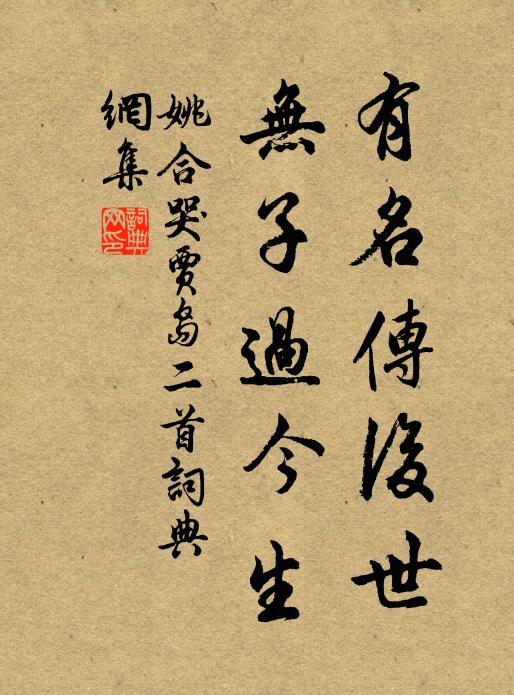 有名傳後世
無子過今生
姚合哭賈島二首詞典
網集
詞典网印